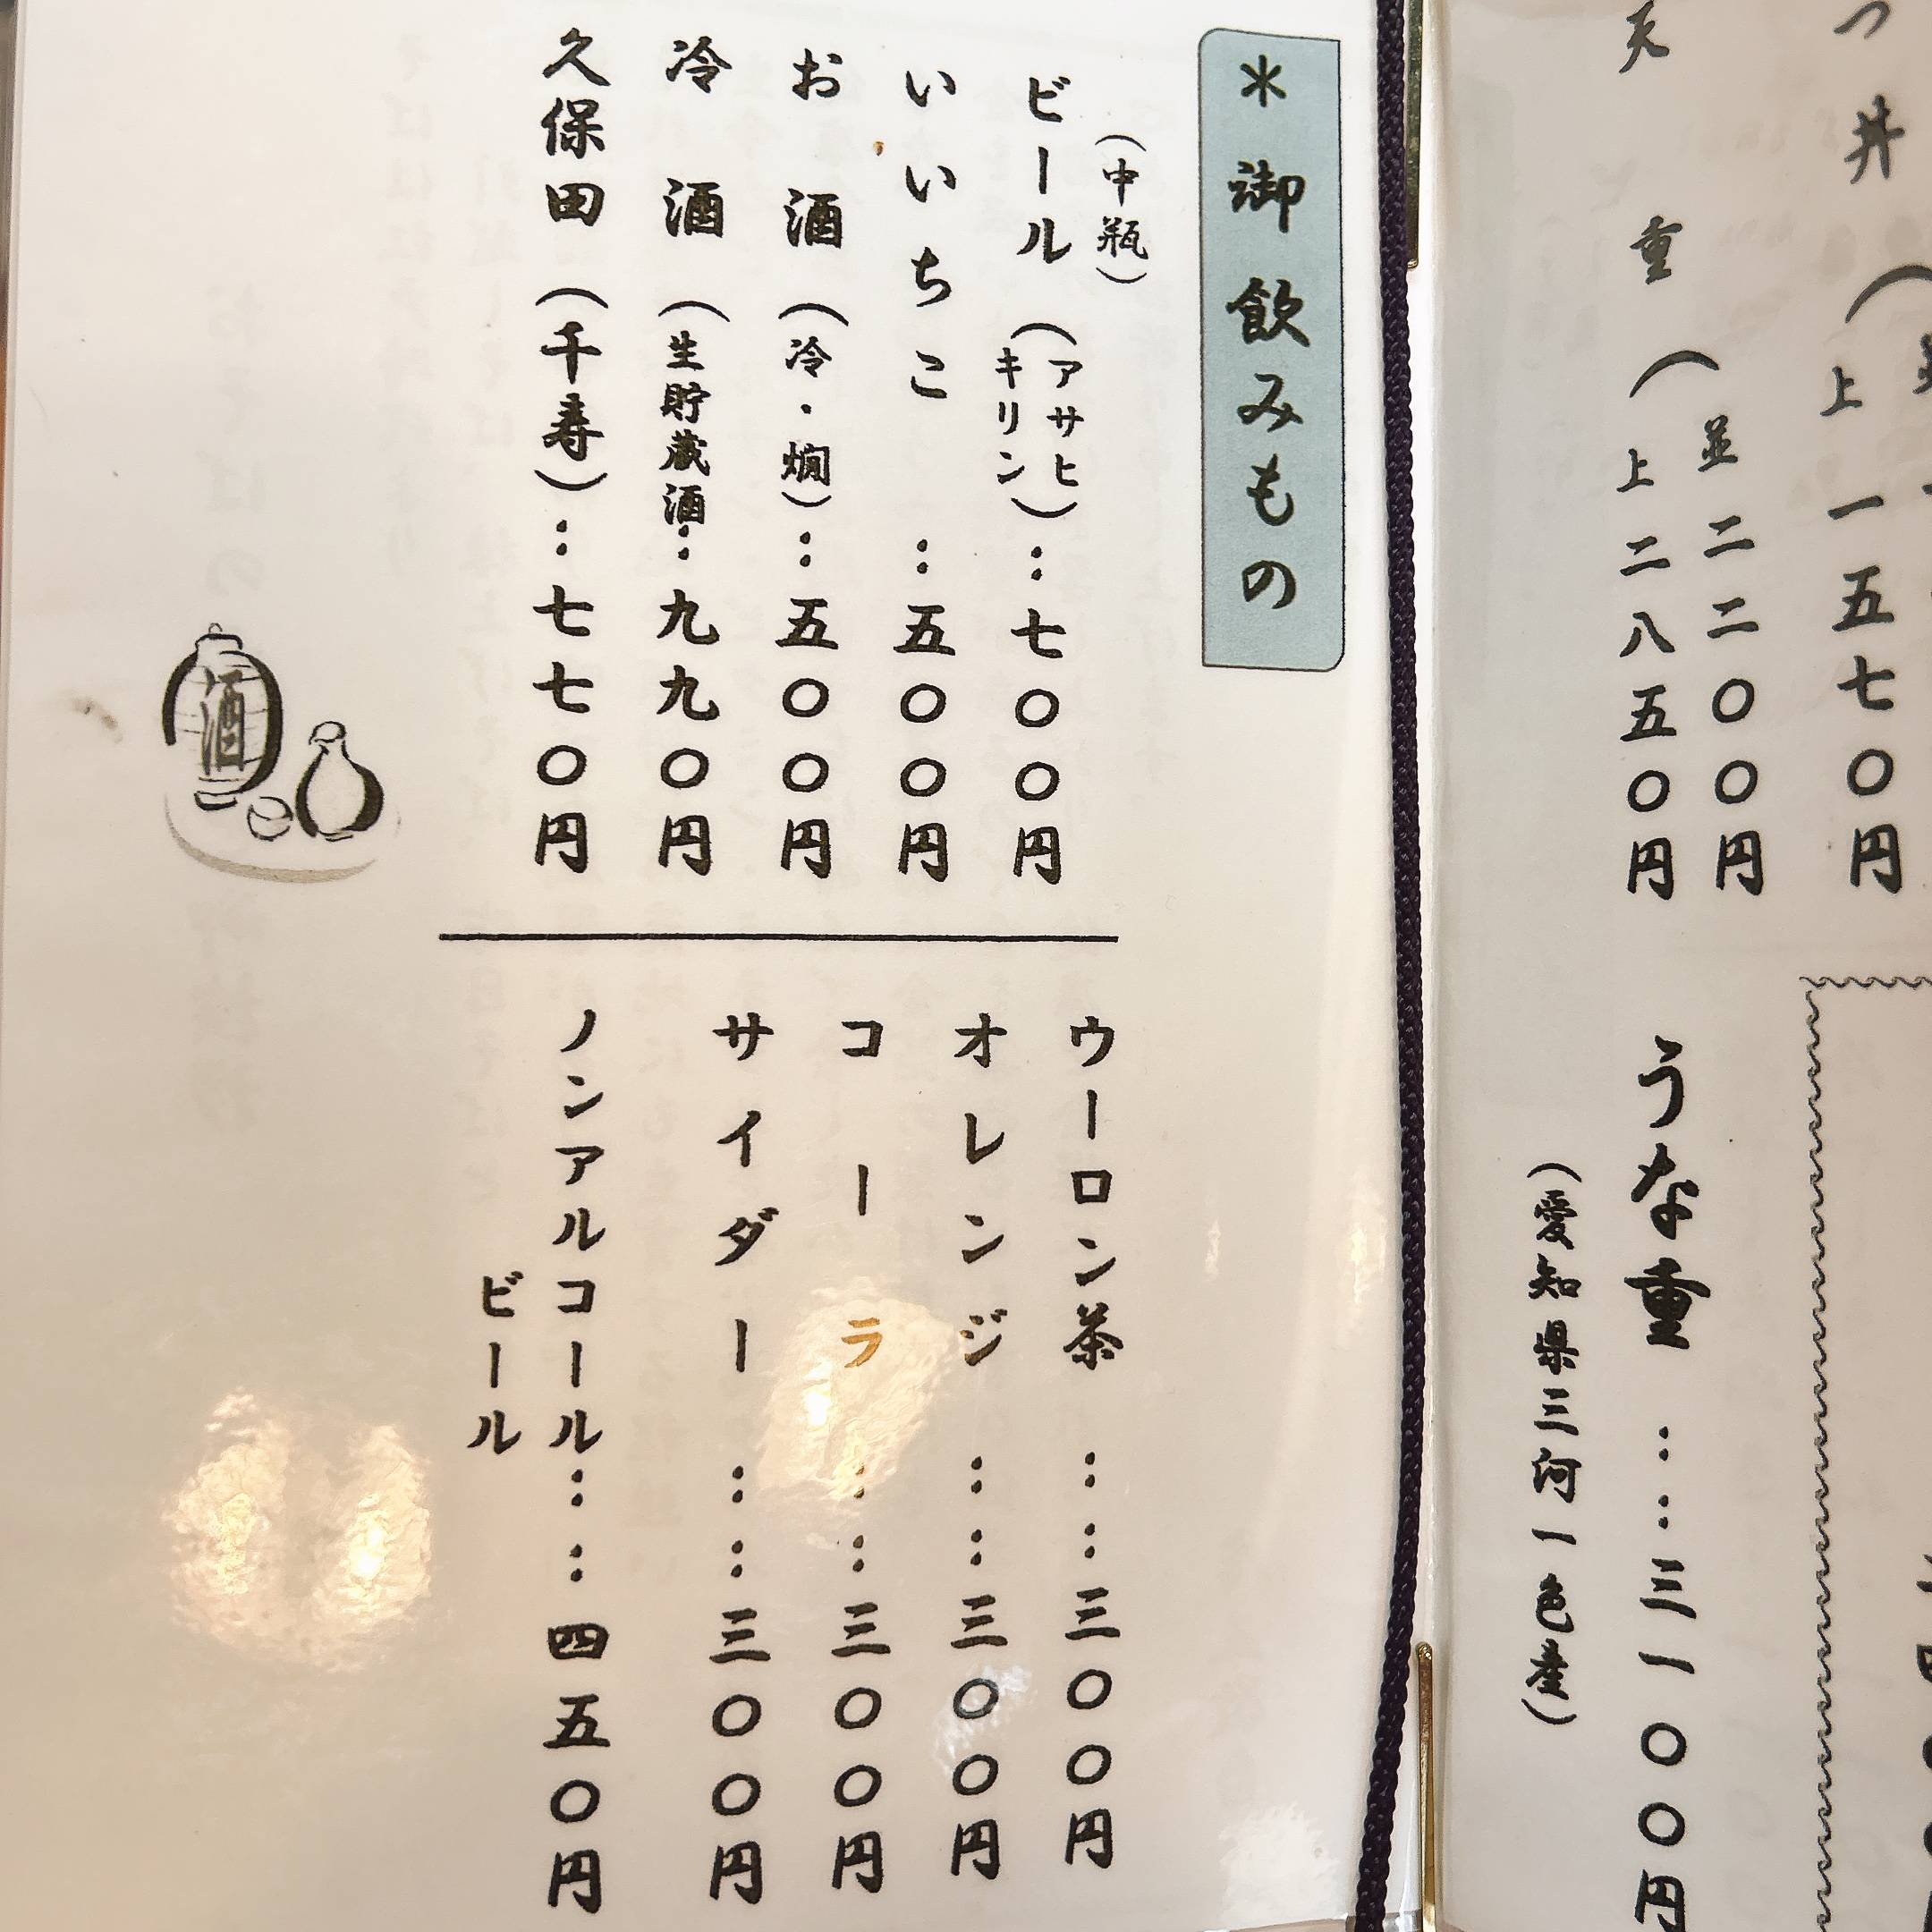 上 一五七〇円
天重(
並 二二〇〇円
上 二八五〇円
うな重……三一〇〇円
(愛知県三河一色産)
＊御飲みもの
(中瓶)
ビール(アサヒ
キリン)…七〇〇円
いいちこ…五〇〇円
お酒(冷・燗)…五〇〇円
冷酒(生貯蔵酒…九九〇円
久保田(千寿)…七七〇円
酒
ウーロン茶……三〇〇円
オレンジ……三〇〇円
コーラ……三〇〇円
サイダー……三〇〇円
ノンアルコール……四五〇円
ビール